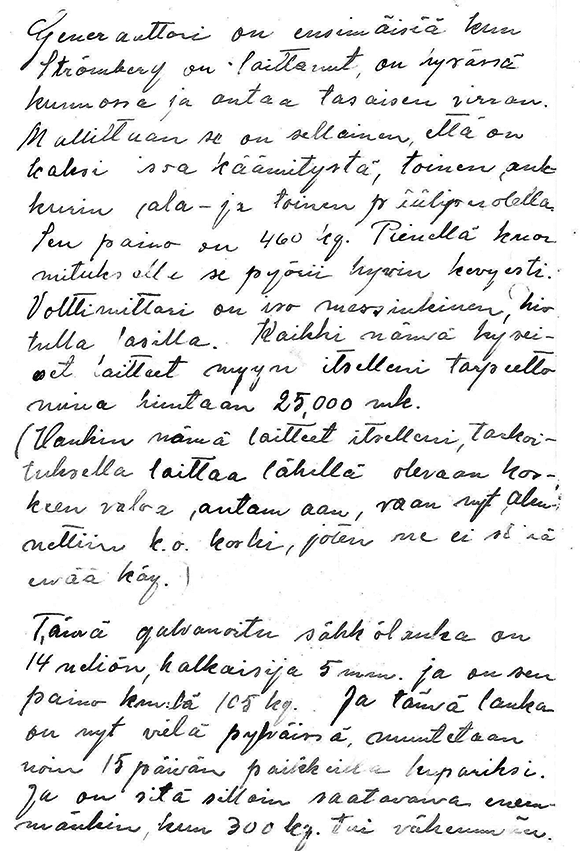 Generauttori on ensimäisiä kun
Strömberg on laittanut, on hyvässä
kunnossa ja antaa tasaisen virran.
Malliltaan se on sellainen, että on
kaksi isoa käämitystä, toinen ank-
kurin ala- ja toinen yläpuolella.
Sen paino on 460 kg. Pienellä kuor
mituksella se pyörii hywin kevyesti.
Volttimittari on iso messinkinen, hio
tulla lasilla. Kaikki nämä kysei-
set laitteet myyn itselleni tarpeetto
mina hintaan 25,000 mk.
(Hankin nämä laitteet itselleni, tarkoi-
tuksella laittaa lähellä olevaan kos-
keen valoa antamaan, vaan nyt alen-
nettiin k.o. koski, joten ne ei siinä
enää käy.)
Tämä galvanoitu sähkölanka on
14 neliön, halkaisija 5 mm. ja on sen
paino km:lä 105 kg. Ja tämä lanka
on nyt vielä pylväissä, muutetaan
noin 15 päivän paikkeilla kupariksi.
Ja on sitä silloin saatavana enem-
mänkin, kun 300 kg. tai vähemmän.